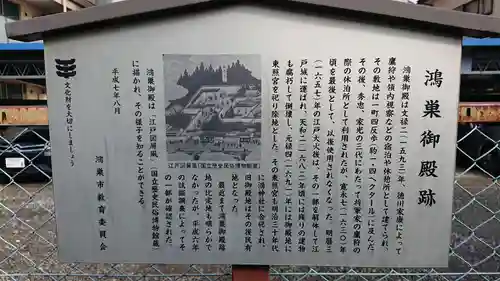 鴻巣御殿跡
鴻巣御殿は文禄二(一五九三)年、徳川家康によって
鷹狩や領内視察の宿泊や休憩所として建てられ、
その敷地は一町四反歩(約一・四ヘクタール)に及んだ。
その後、秀忠、家光の三代にわたって将軍家の鷹狩の
際の休泊所として利用されたが、寛永七(一六三〇)年
頃を最後として、以後使用されなくなった。明暦三
(一六五七)年の江戸大火後は、その一部を解体して江
戸城に運ばれ、天和二(一六八二)年頃には残りの建物
も腐朽して倒壊し、元禄四(一六九一)年には御殿地に
東照宮を祀り除地とした。その東照宮も明治三十年代
に鴻神社に合祀され、
旧御殿地はその後民有
地となった。
最近まで鴻巣御殿跡
地の比定地も明らかで
なかったが、平成六年
の試掘調査によってそ
の一部が確認された。
鴻巣御殿は「江戸図屏風」(国立歴史民俗博物館蔵)
に描かれ、その様子を知ることができる。
平成七年八月
鴻巣市教育委員会
文化財を大切にしましょう
江戸図屏風(国立歴史民俗博物館蔵)